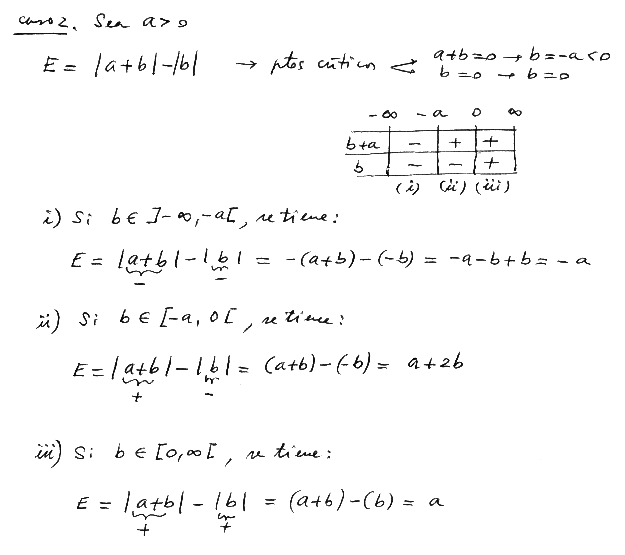 caso 2. Sea a>0
E = |a+b|-|b| → ptos críticos < a+b=0 → b=-a<0
b=0 → b=0
-∞ -a 0 ∞
b+a - + +
b - - +
(i) (ii) (iii)
i) Si b ∈ ]-∞,-a[, se tiene:
E = |a+b|-|b| = -(a+b)-(-b) = -a-b+b = -a
- -
ii) Si b ∈ [-a, 0[, se tiene:
E = |a+b|-|b| = (a+b)-(-b) = a+2b
+ -
iii) Si b ∈ [0,∞[, se tiene:
E = |a+b| - |b| = (a+b)-(b) = a
+ +